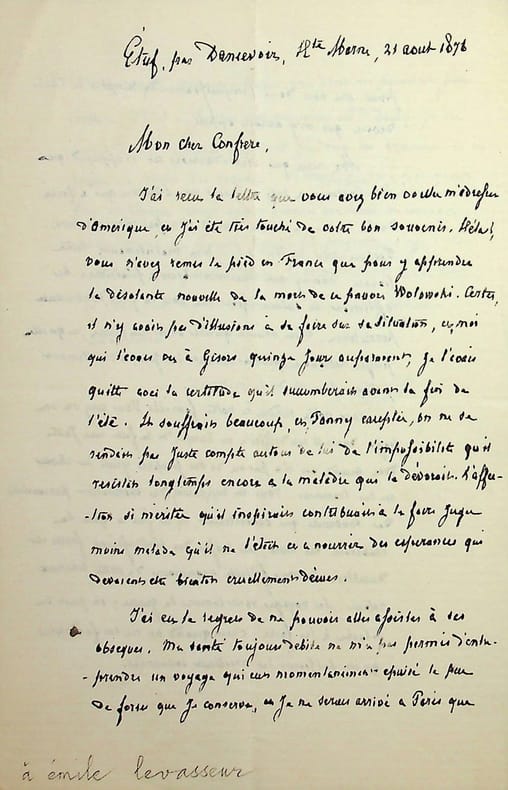 Étuf, par Dancevoir, Hte Marne, 21 aout 1876
Mon cher Confrère,
J'ai recu la lettre que vous avez bien voulu m'adresser
d'Amérique et j'ai été très touché de votre bon souvenir. Hélas!
vous n'avez remis le pied en France que pour y apprendre
la désolante nouvelle de la mort de ce pauvre Wolowski. Certes,
il n'y avait pas d'illusions à se faire sur sa situation, et moi
qui l'avais vu à Gisors quinze jours auparavant, je l'avais
quitté avec la certitude qu'il succomberait avant la fin de
l'été. Il souffrait beaucoup, et Fanny exceptée, on ne se
rendait pas juste compte autour de lui de l'impossibilité qu'il
resistât longtemps encore a la maladie qui le dévorait. L'affec-
-tion si méritée qu'il inspirait contribuait à le faire juger
moins malade qu'il ne l'était et a nourrir des esperances qui
devaient etre bientôt cruellement décues.
J'ai eu le regret de ne pouvoir aller assister à ses
obseques. Ma santé toujours debile ne m'a pas permis d'entre-
-prendre un voyage qui eut momentanément epuisé le peu
de force que je conserve, et je ne serais arrivé a Paris que
à émile levasseur